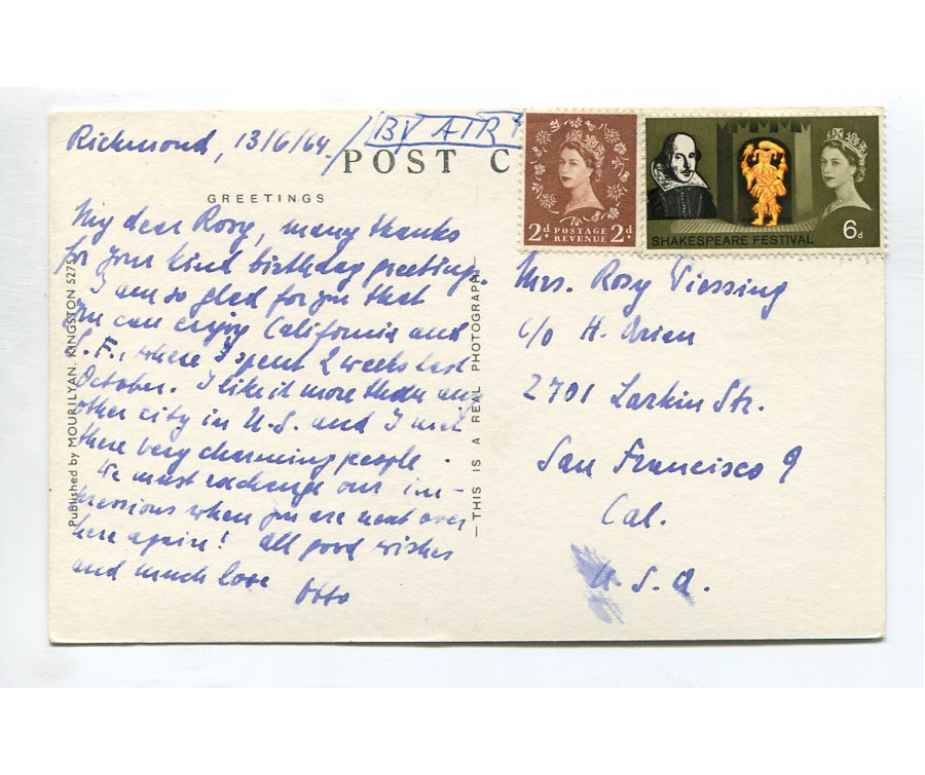 Richmond, 13/6/64.
BY AIR
POST C
GREETINGS
My dear Rosy, many thanks
for your kind birthday greetings.
I am so glad for you that
you can enjoy California and
S.F., where I spent 2 weeks last
October. I like it more than any
other city in U.S. and I met
there very charming people.
We must exchange our im-
pressions when you are next over
here again! All good wishes
and much love Otto
Published by MOURILYAN, KINGSTON 5275
—THIS IS A REAL PHOTOGRAPH
2d POSTAGE REVENUE 2d
SHAKESPEARE FESTIVAL 6d
Mrs. Rosy
c/o H.
2701 Larkin Str.
San Francisco 9
Cal.
U.S.A.